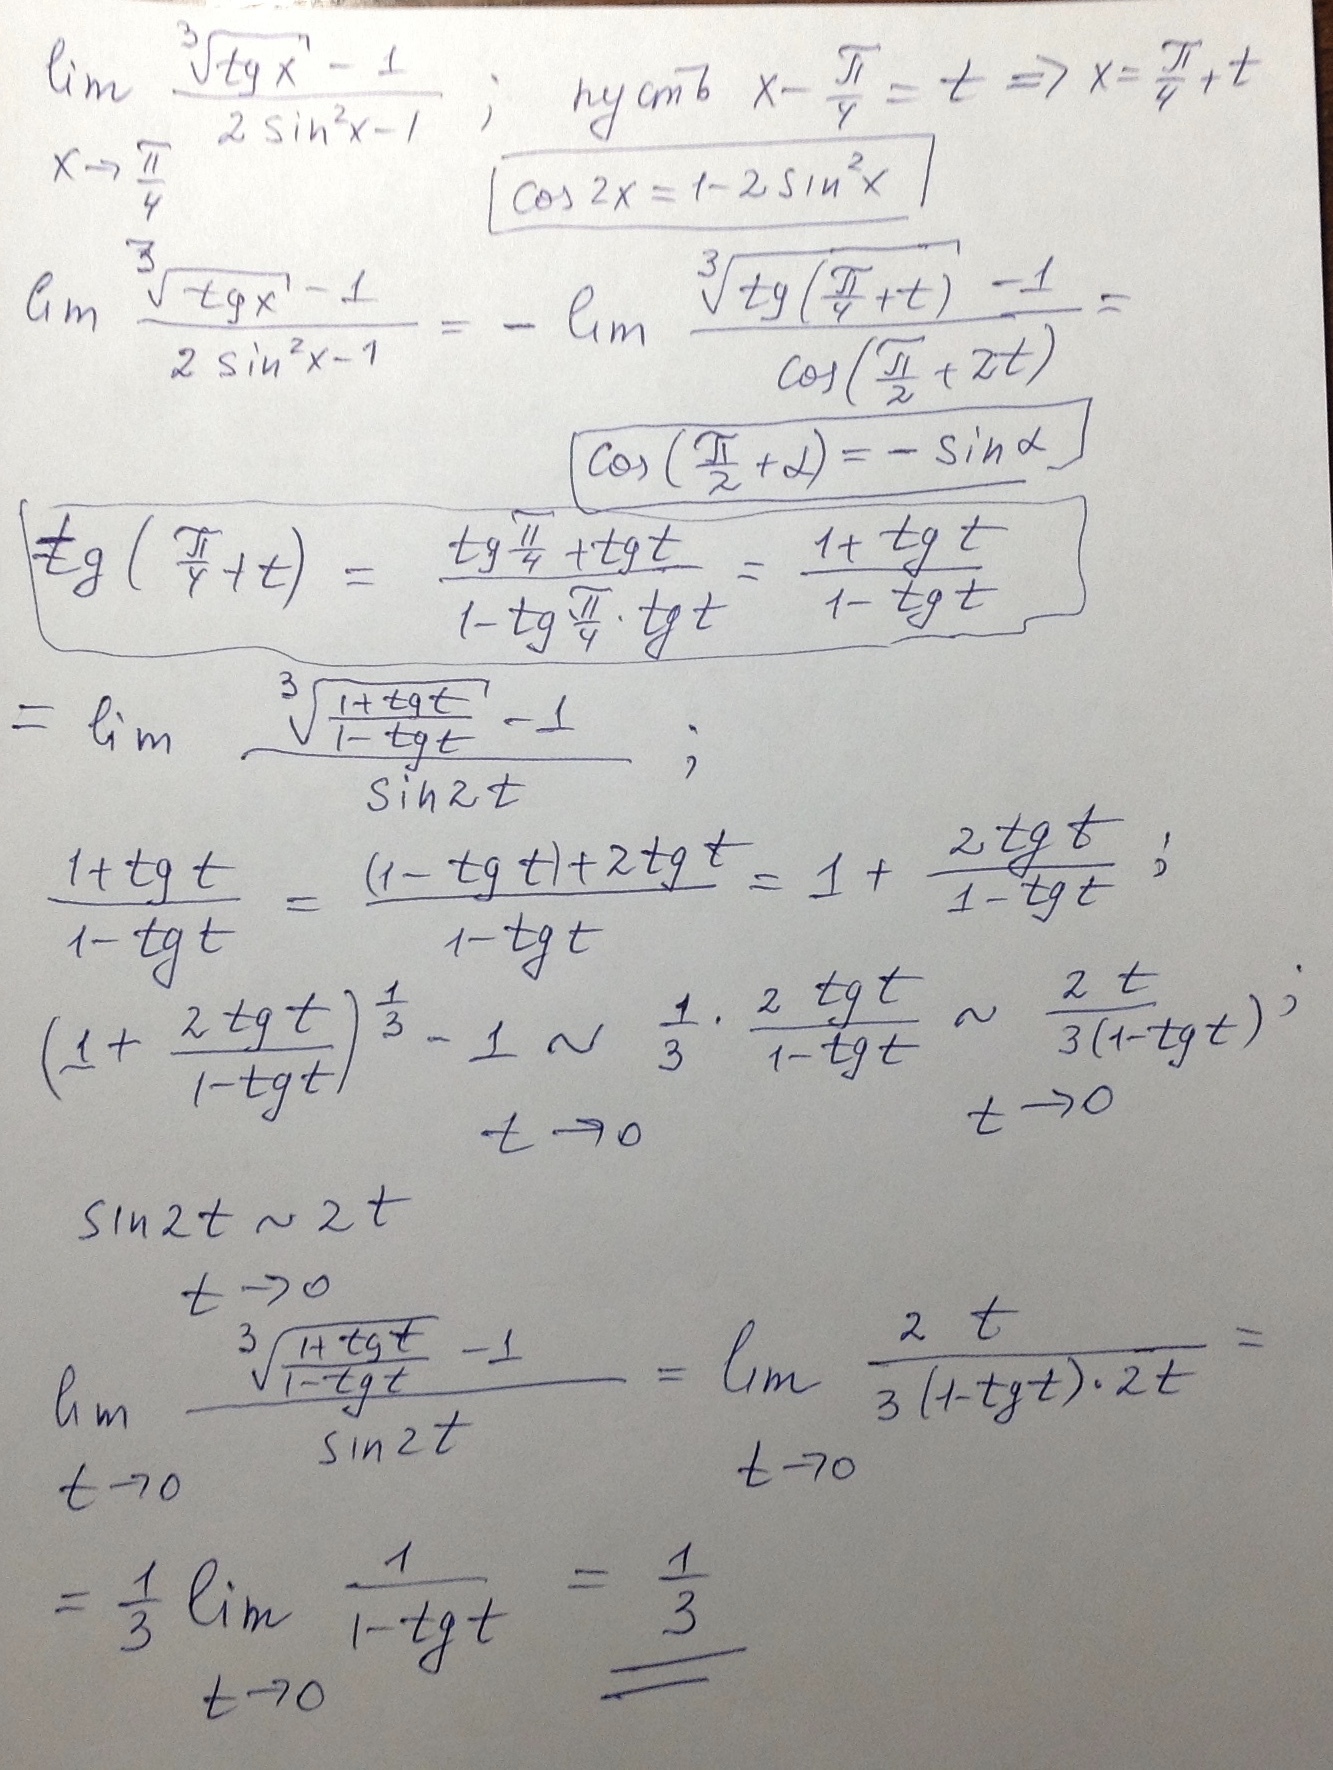 lim ∛(tg x) - 1 / 2 sin²x - 1 ; пусть x - π/4 = t => x = π/4 + t
x → π/4
cos 2x = 1 - 2 sin²x
lim ∛(tg x) - 1 / 2 sin²x - 1 = - lim ∛(tg(π/4 + t)) - 1 / cos(π/2 + 2t) =
cos(π/2 + α) = - sin α
tg(π/4 + t) = tg π/4 + tg t / 1 - tg π/4 · tg t = 1 + tg t / 1 - tg t
= lim ∛(1 + tg t / 1 - tg t) - 1 / sin 2t ;
1 + tg t / 1 - tg t = (1 - tg t) + 2 tg t / 1 - tg t = 1 + 2 tg t / 1 - tg t ;
(1 + 2 tg t / 1 - tg t)^(1/3) - 1 ~ 1/3 · 2 tg t / 1 - tg t ~ 2 t / 3(1 - tg t) ;
t → 0 t → 0
sin 2t ~ 2t
t → 0
lim ∛(1 + tg t / 1 - tg t) - 1 / sin 2t = lim 2 t / 3(1 - tg t) · 2t =
t → 0 t → 0
= 1/3 lim 1 / 1 - tg t = 1/3
t → 0